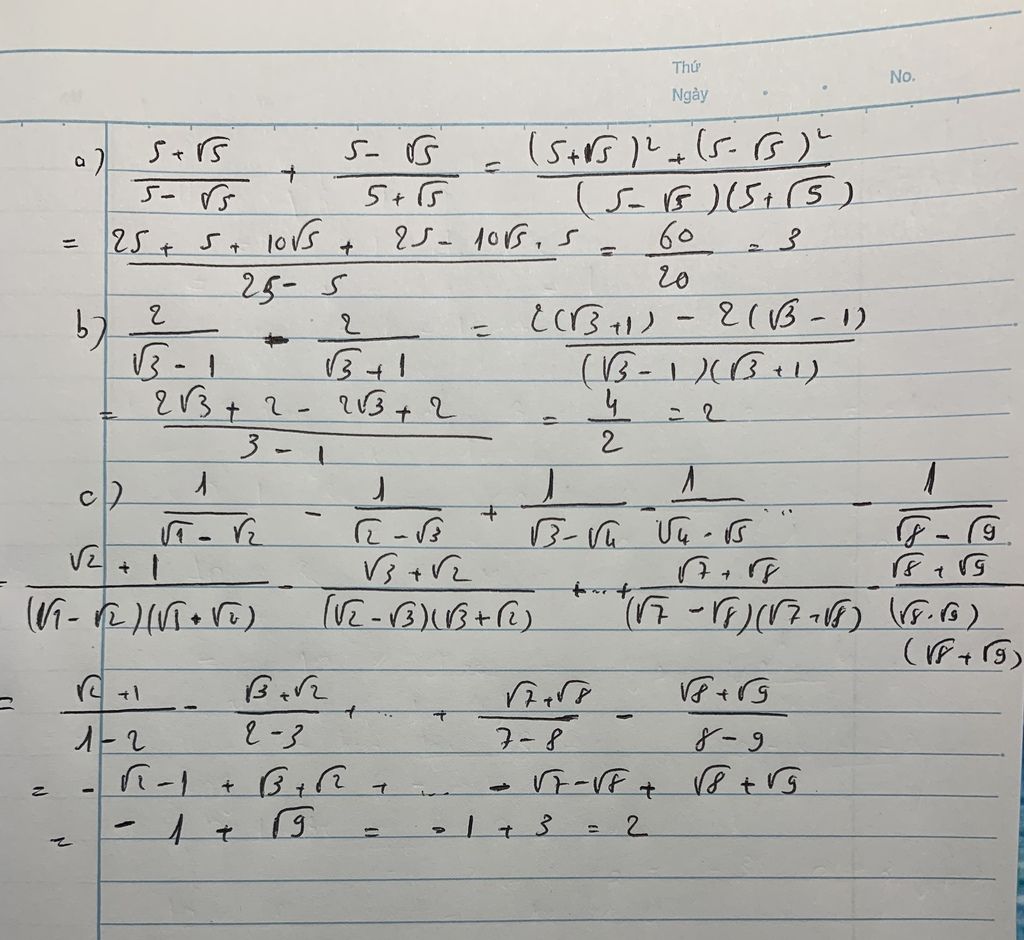 Thứ
Ngày
No.
a) (5+√5)/(5-√5) + (5-√5)/(5+√5) = ((5+√5)² + (5-√5)²)/((5-√5)(5+√5))
= (25 + 5 + 10√5 + 25 - 10√5 + 5)/(25 - 5) = 60/20 = 3
b) 2/(√3 - 1) - 2/(√3 + 1) = (2(√3+1) - 2(√3-1))/((√3-1)(√3+1))
= (2√3 + 2 - 2√3 + 2)/(3 - 1) = 4/2 = 2
c) 1/(√1 - √2) - 1/(√2 - √3) + 1/(√3 - √4) - 1/(√4 - √5) ... - 1/(√8 - √9)
= (√2 + 1)/((√1 - √2)(√1 + √2)) - (√3 + √2)/((√2 - √3)(√3 + √2)) + ... + (√7 + √8)/((√7 - √8)(√7 + √8)) - (√8 + √9)/((√8 - √9)(√8 + √9))
= (√2 + 1)/(1 - 2) - (√3 + √2)/(2 - 3) + ... + (√7 + √8)/(7 - 8) - (√8 + √9)/(8 - 9)
= - √2 - 1 + √3 + √2 + ... - √7 - √8 + √8 + √9
= - 1 + √9 = - 1 + 3 = 2